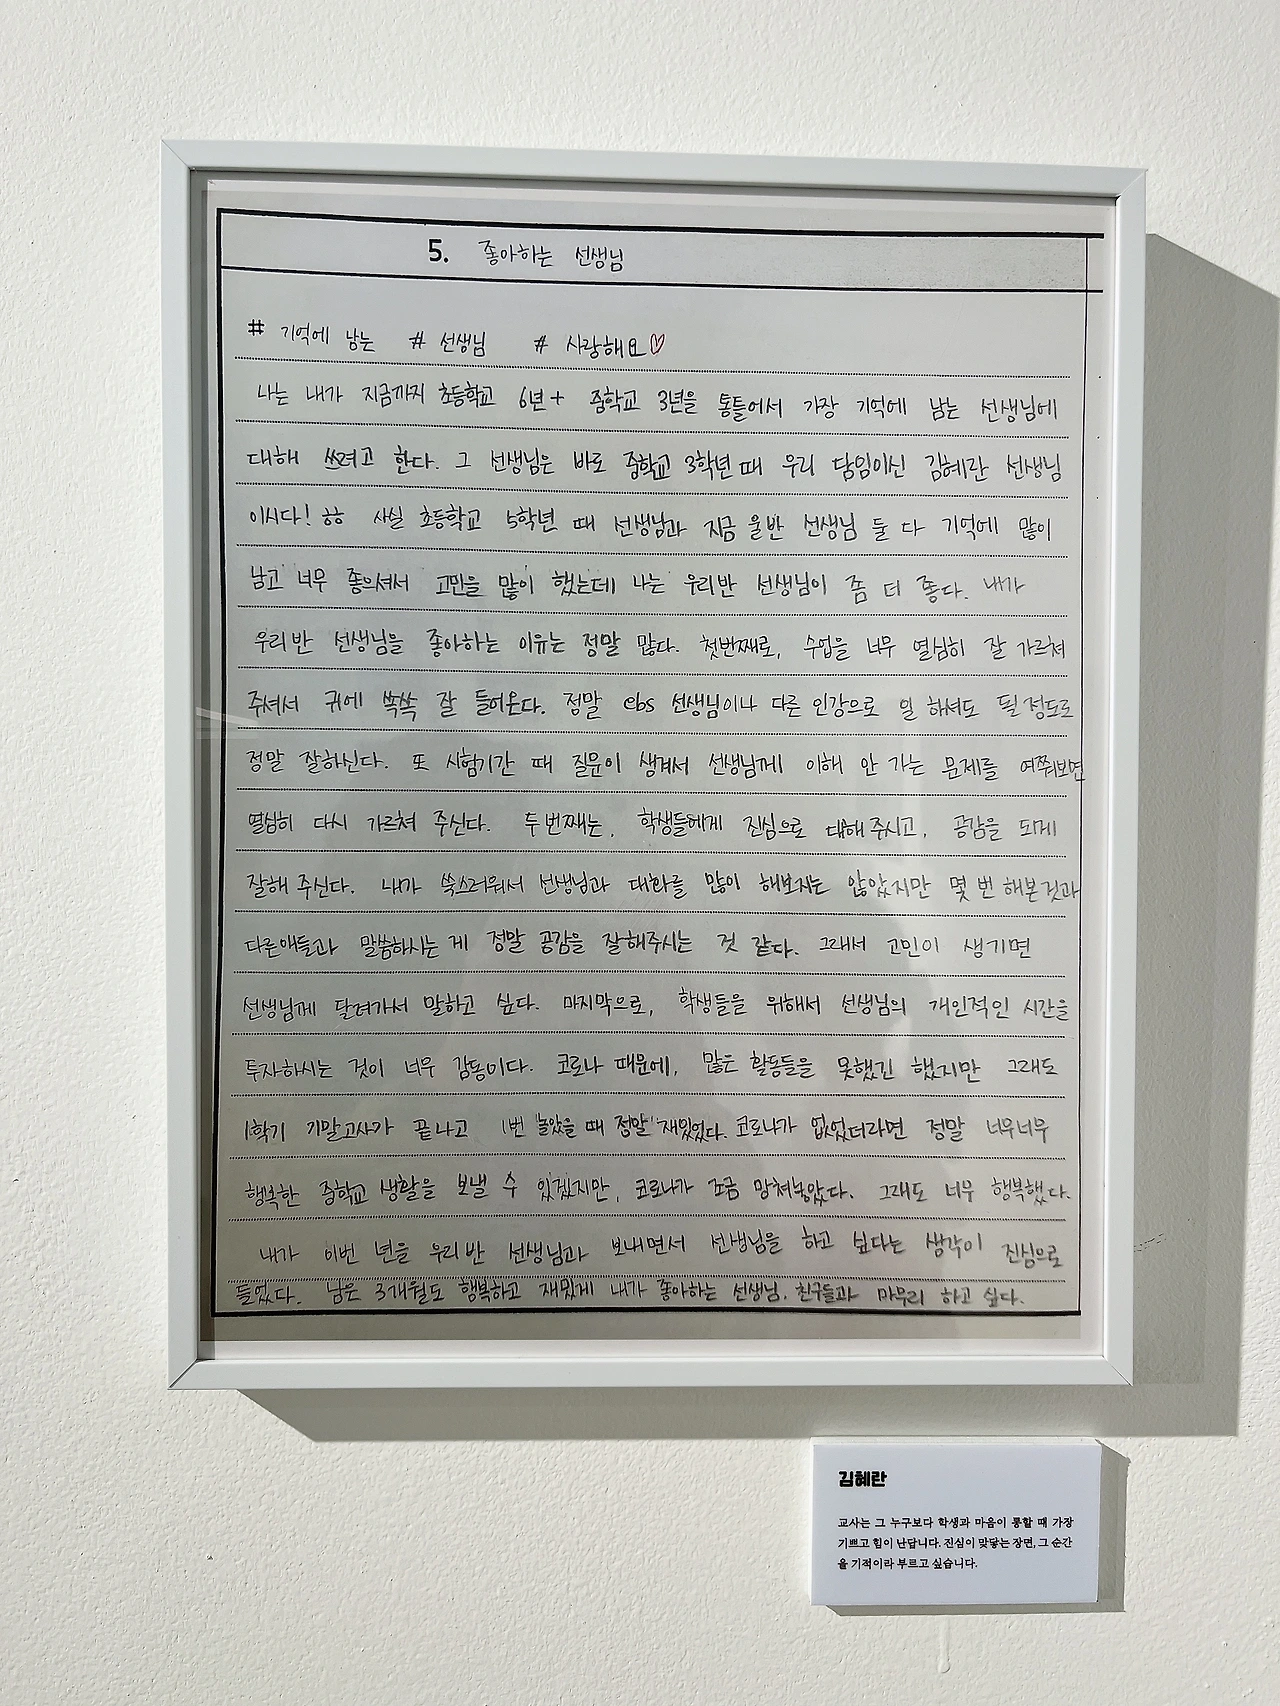 5. 좋아하는 선생님
# 기억에 남는 # 선생님 # 사랑해요♡
나는 내가 지금까지 초등학교 6년+ 중학교 3년을 통틀어서 가장 기억에 남는 선생님에
대해 쓰려고 한다. 그 선생님은 바로 중학교 3학년 때 우리 담임이신 김혜란 선생님
이시다! ㅎㅎ 사실 초등학교 5학년 때 선생님과 지금 울반 선생님 둘 다 기억에 많이
남고 너무 좋으셔서 고민을 많이 했는데 나는 우리반 선생님이 좀 더 좋다. 내가
우리반 선생님을 좋아하는 이유는 정말 많다. 첫번째로, 수업을 너무 열심히 잘 가르쳐
주셔서 귀에 쏙쏙 잘 들어온다. 정말 ebs 선생님이나 다른 인강으로 일 하셔도 될 정도로
정말 잘하신다. 또 시험기간 때 질문이 생겨서 선생님께 이해 안 가는 문제를 여쭤보면
열심히 다시 가르쳐 주신다. 두번째는, 학생들에게 진심으로 대해 주시고, 공감을 되게
잘해 주신다. 내가 쑥스러워서 선생님과 대화를 많이 해보지는 않았지만 몇 번 해본것과
다른애들과 말씀하시는 게 정말 공감을 잘해주시는 것 같다. 그래서 고민이 생기면
선생님께 달려가서 말하고 싶다. 마지막으로, 학생들을 위해서 선생님의 개인적인 시간을
투자하시는 것이 너무 감동이다. 코로나 때문에, 많은 활동들을 못했긴 했지만 그래도
1학기 기말고사가 끝나고 1번 놀았을 때 정말 재밌었다. 코로나가 없었더라면 정말 너무너무
행복한 중학교 생활을 보낼 수 있겠지만, 코로나가 조금 망쳐놓았다. 그래도 너무 행복했다.
내가 이번 년을 우리반 선생님과 보내면서 선생님을 하고 싶다는 생각이 진심으로
들었다. 남은 3개월도 행복하고 재밌게 내가 좋아하는 선생님, 친구들과 마무리 하고 싶다.
김혜란
교사는 그 누구보다 학생과 마음이 통할 때 가장
기쁘고 힘이 난답니다. 진심이 맞닿는 장면, 그 순간
을 기적이라 부르고 싶습니다.